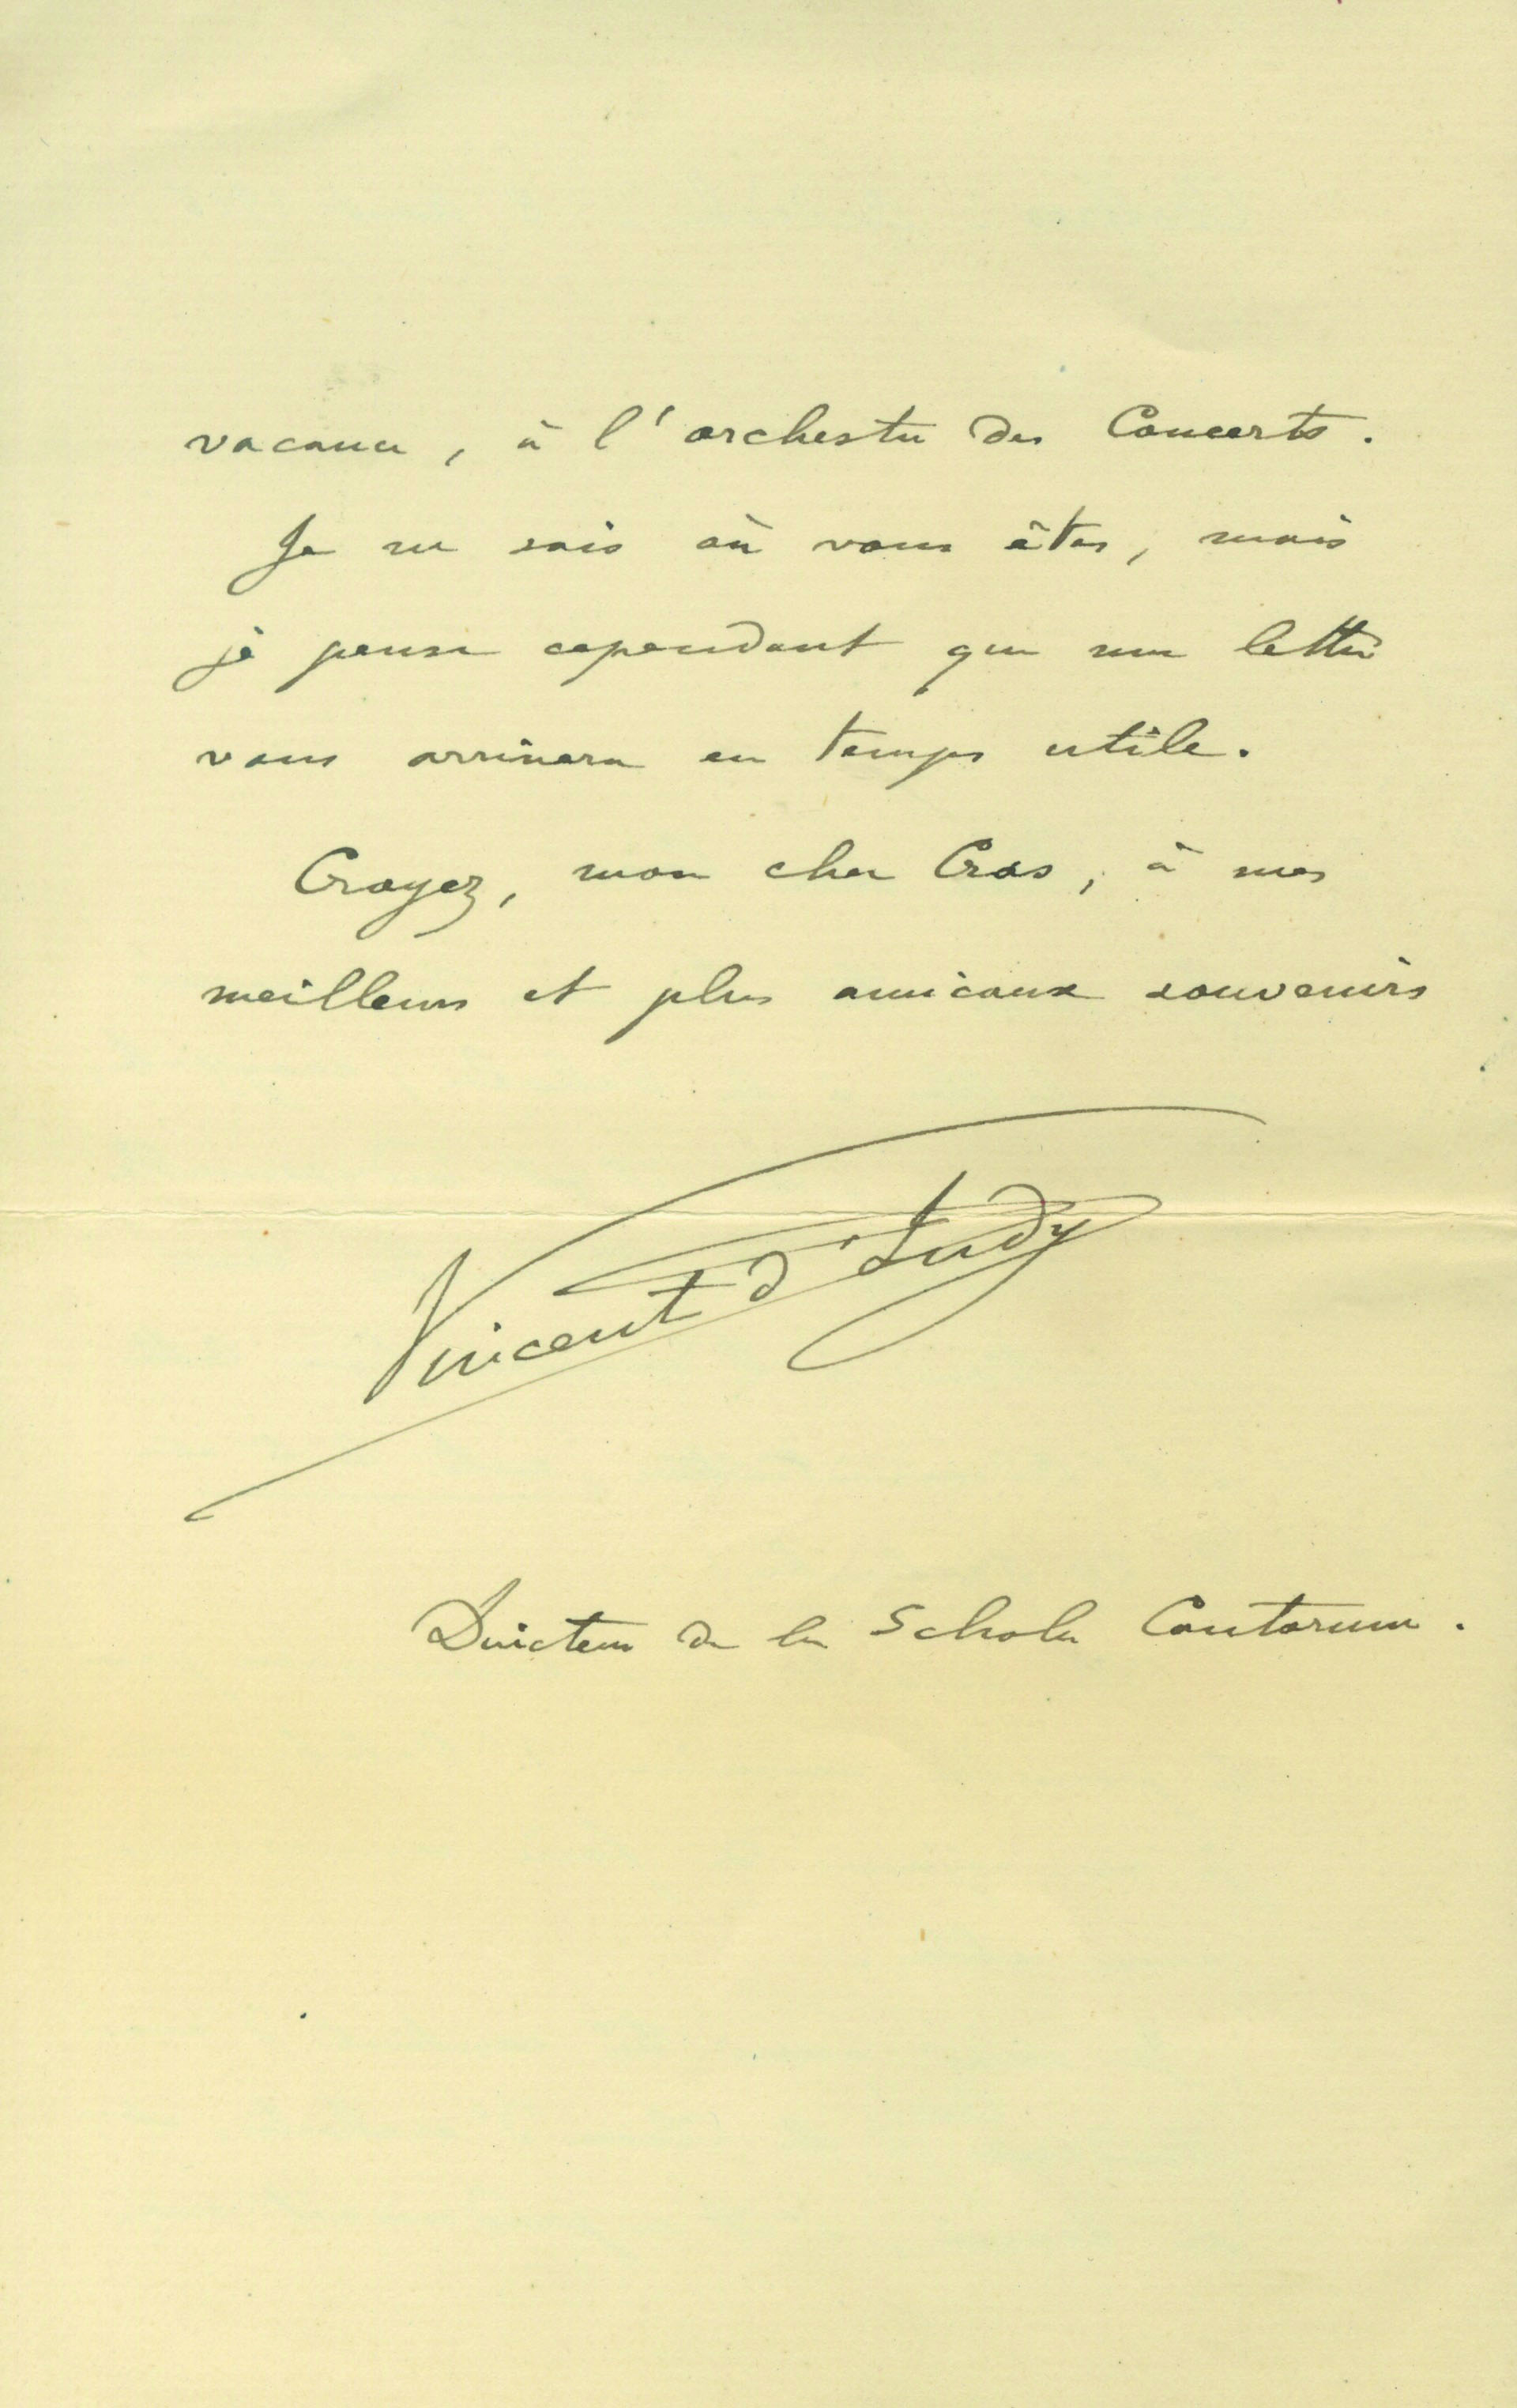 vacance, à l'orchestre des Concerts.
Je ne sais où vous êtes, mais
je pense cependant que ma lettre
vous arrivera en temps utile.
Croyez, mon cher Cras, à mes
meilleurs et plus amicaux souvenirs
Vincent d'Indy
Directeur de la Schola Cantorum.